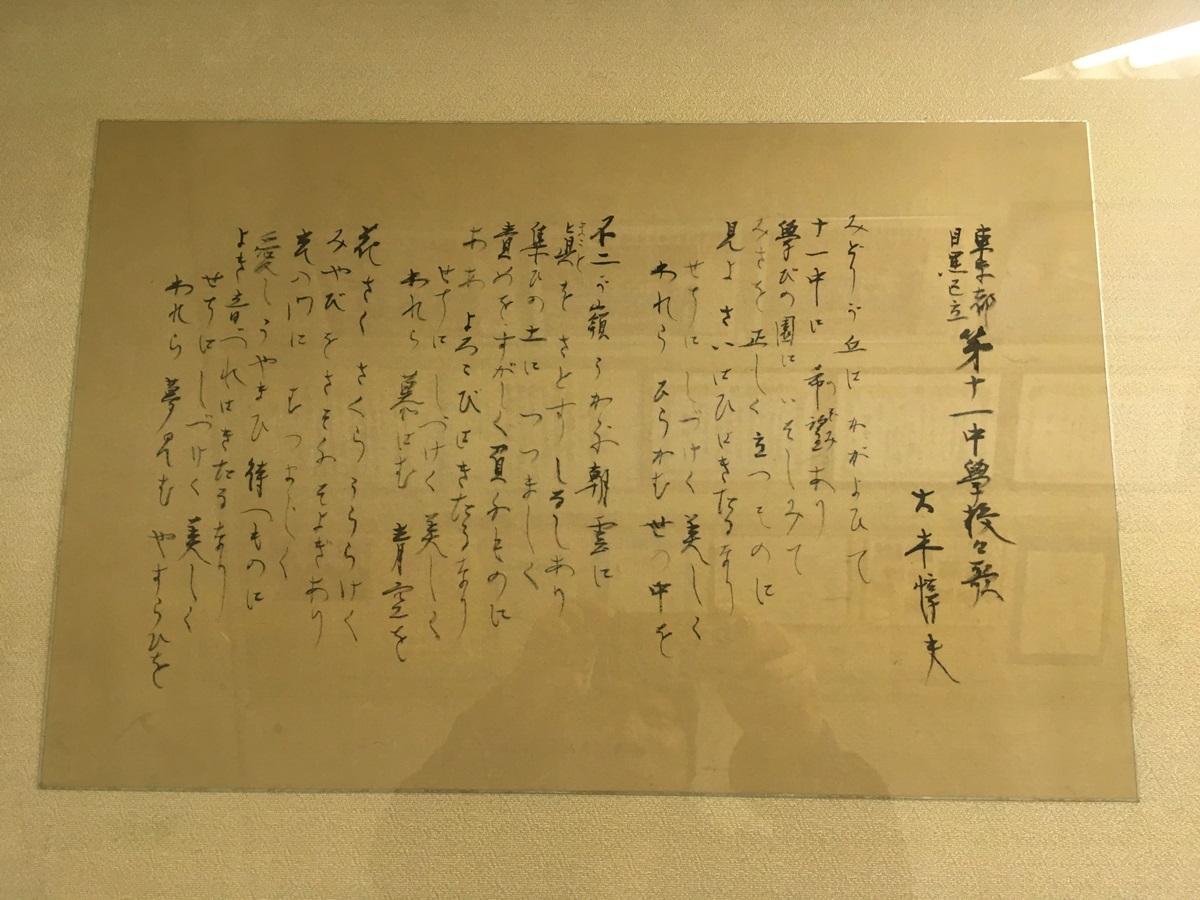 東京都
目黒区立
第十一中學校々歌
大木惇夫
みどりが丘に かがよひて
十一中に 希望あり
のぞみ
學びの園に いそしみて
みさを正しく 立つものに
見よ さいはひはきたるなり
せちにしづけく 美しく
われら ひらかむ 世の中を
不二が嶺 うかぶ 朝雲に
眞を さとす しるしあり
まこと
集ひの土に つつましく
責めをすがしく 負ふものに
ああ よろこびはきたるなり
せちに しづけく 美しく
われら 慕はむ 青空を
花さく さくら うららけく
みやびをさそふ そよぎあり
その門に むつまじく
愛し うやまひ 待つものに
よき音づれはきたるなり
せちにしづけく 美しく
われら 夢見む やすらひを